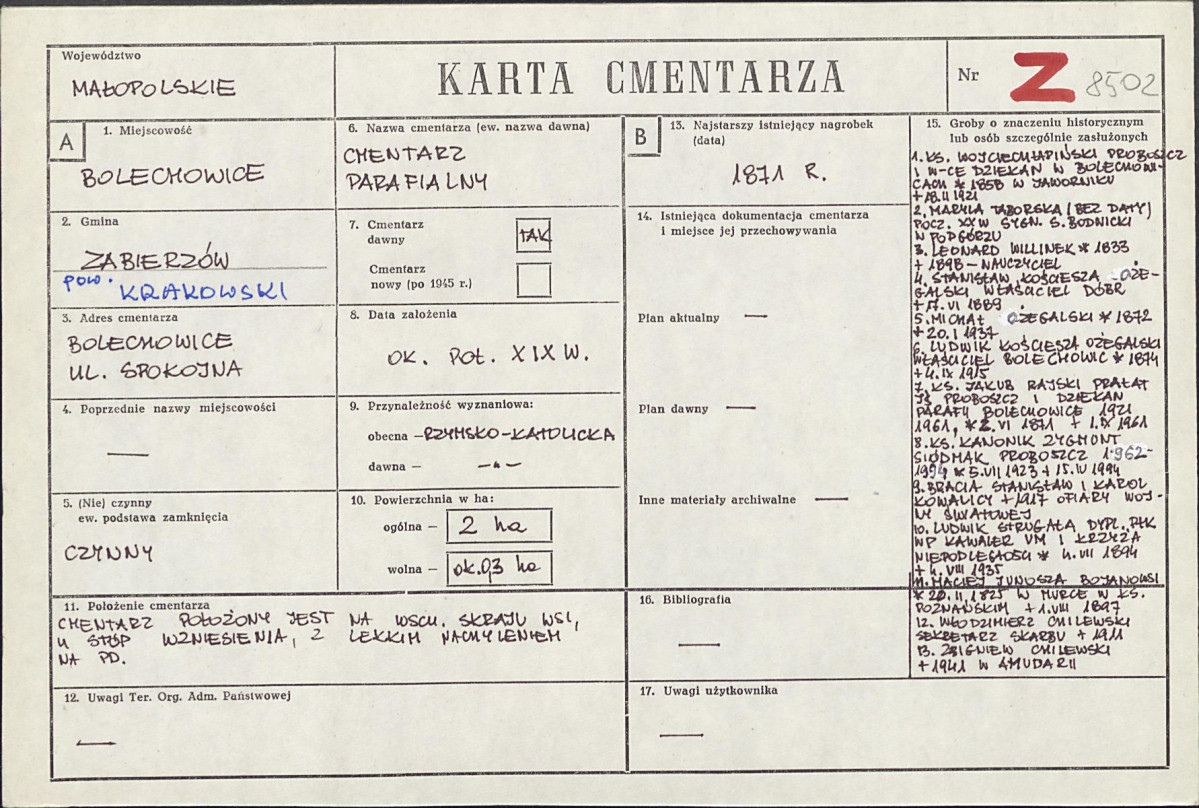 Województwo
MAŁOPOLSKIE
KARTA CMENTARZA
Nr Z 8502
A
1. Miejscowość
BOLECHOWICE
2. Gmina
ZABIERZÓW
pow. KRAKOWSKI
3. Adres cmentarza
BOLECHOWICE
UL. SPOKOJNA
4. Poprzednie nazwy miejscowości
—
5. (Nie) czynny
ew. podstawa zamknięcia
CZYNNY
6. Nazwa cmentarza (ew. nazwa dawna)
CMENTARZ
PARAFIALNY
7. Cmentarz
dawny TAK
Cmentarz
nowy (po 1945 r.)
8. Data założenia
OK. POŁ. XIX W.
9. Przynależność wyznaniowa:
obecna – RZYMSKO-KATOLICKA
dawna – —„—
10. Powierzchnia w ha:
ogólna – 2 ha
wolna – ok. 0,3 ha
11. Położenie cmentarza
CMENTARZ POŁOŻONY JEST NA WSCH. SKRAJU WSI,
U STÓP WZNIESIENIA, Z LEKKIM NACHYLENIEM
NA PD.
12. Uwagi Ter. Org. Adm. Państwowej
—
B
13. Najstarszy istniejący nagrobek
(data)
1871 R.
14. Istniejąca dokumentacja cmentarza
i miejsce jej przechowywania
Plan aktualny —
Plan dawny —
Inne materiały archiwalne —
15. Groby o znaczeniu historycznym
lub osób szczególnie zasłużonych
1. KS. WOJCIECH ŁAPIŃSKI PROBOSZCZ
I W-CE DZIEKAN W BOLECHOWI-
CACH * 1858 W JAWORNIKU
+ 18.II 1921
2. MARYLA TABORSKA (BEZ DATY)
POCZ. XX W SYGN. S. BODNICKI
W PODGÓRZU
3. LEONARD WILLINEK * 1833
+ 1898 – NAUCZYCIEL
4. STANISŁAW KOŚCIESZA OŻE-
GALSKI WŁAŚCICIEL DÓBR
+ 17. VI 1889
5. MICHAŁ OŻEGALSKI * 1872
+ 20. I 1937
6. LUDWIK KOŚCIESZA OŻEGALSKI
WŁAŚCICIEL BOLECHOWIC * 1874
+ 4. IX 1915
7. KS. JAKUB RAJSKI PRAŁAT
JŚ PROBOSZCZ I DZIEKAN
PARAFII BOLECHOWICE 1921
1961, * 2. VI 1871 + 1. IX 1961
8. KS. KANONIK ZYGMONT
SIODMAK PROBOSZCZ 1962-
1994 * 5. VII 1923 + 15. IV 1994
9. BRACIA STANISŁAW I KAROL
KOWALICY + 1917 OFIARY WOJ-
NY ŚWIATOWEJ
10. LUDWIK STRUGAŁA DYPL. PŁK
WP KAWALER VM I KRZYŻA
NIEPODLEGŁOŚCI * 4. VII 1894
+ 4. VIII 1935
11. MACIEJ JUNOSZA BOJANOWSI
* 20. II. 1825 W MURCE W KS.
POZNAŃSKIM + 1. VIII 1897
12. WŁODZIMIERZ CHILEWSKI
SEKRETARZ SKARBU + 1911
13. ZBIGNIEW CHILEWSKI
+ 1941 W AMUDARII
16. Bibliografia
—
17. Uwagi użytkownika
—